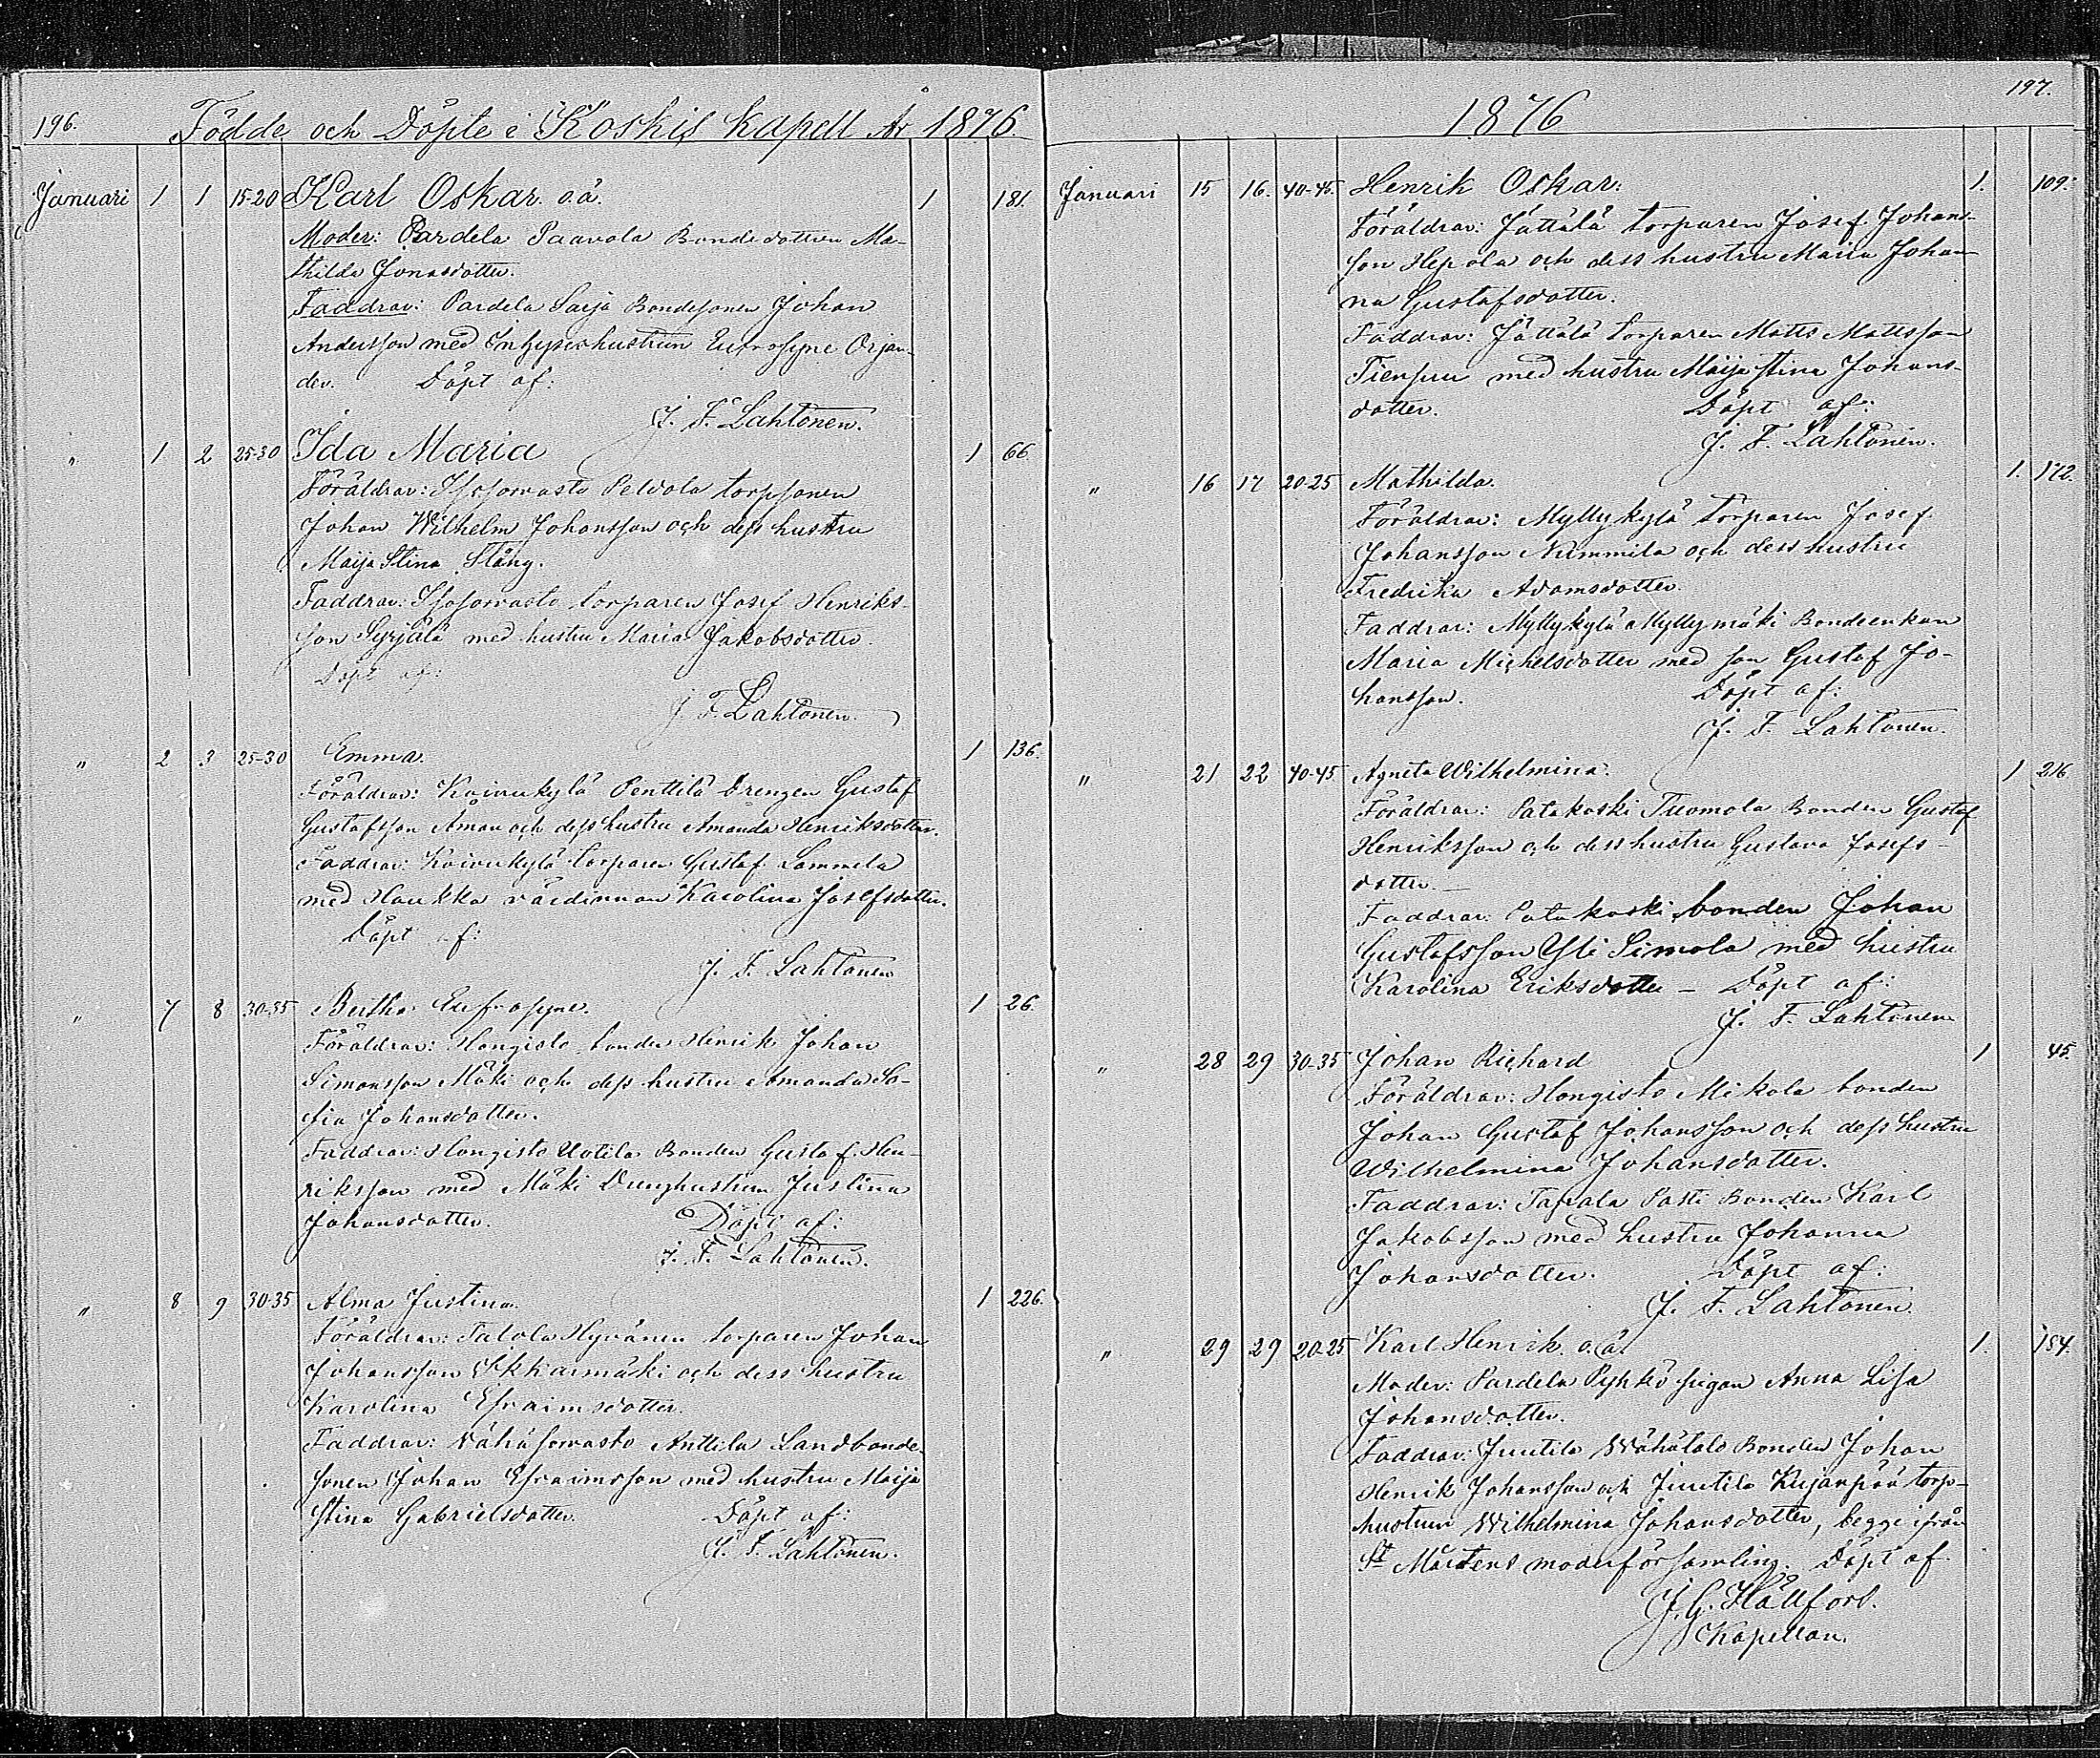 196. Födde och Döpte i Koskis Kapell År 1876.
Januari 1 1 15-20 Karl Oskar. o.ä. 1 181.
Moder: Pardela Paavola Bondedottren Ma-
thilda Jonasdotter.
Faddrar: Pardela Saija Bondesonen Johan
Andersson med Inhyseshustrun Eufrosyne Orjan-
der. Döpt af:
J. F. Lahtonen.
" 1 2 25-30 Ida Maria 1 66.
Föräldrar: Isosorvasto Peldola torpsonen
Johan Wilhelm Johansson och dess hustru
Maija Stina Stång.
Faddrar: Isosorvasto torparen Josef Henriks-
son Syrjälä med hustru Maria Jakobsdotter.
Döpt af:
J. F. Lahtonen.
" 2 3 25-30 Emma. 1 136.
Föräldrar: Koivukylä Penttilä Drengen Gustaf
Gustafsson Åman och dess hustru Amanda Henriksdotter.
Faddrar: Koivukylä torparen Gustaf Lammela
med Haukka värdinnan Karolina Josefsdotter.
Döpt af:
J. F. Lahtonen
" 7 8 30-35 Bertha Eufrosyne. 1 26.
Föräldrar: Hongisto bonden Henrik Johan
Simonsson Mäki och dess hustru Amanda So-
fia Johansdotter.
Faddrar: Hongisto Uotila Bonden Gustaf Hen-
riksson med Mäki Drenghustrun Justina
Johansdotter. Döpt af:
J. F. Lahtonen.
" 8 9 30-35 Alma Justina. 1 226.
Föräldrar: Talola Hyvänen torparen Johan
Johansson Sikkarmäki och dess hustru
Karolina Efraimsdotter.
Faddrar: Vähäsorvasto Anttila Landbonde-
sonen Johan Efraimsson med hustru Maija
Stina Gabrielsdotter. Döpt af:
J. F. Lahtonen.
197.
1876
Januari 15 16. 40-45. Henrik Oskar. 1. 109.
Föräldrar: Jättälä torparen Josef Johans-
son Hepola och dess hustru Maria Johan-
na Gustafsdotter.
Faddrar: Jättälä torparen Matts Mattsson
Tiensuu med hustru Maija Stina Johans-
dotter. Döpt af:
J. F. Lahtonen.
" 16 17 20-25 Mathilda. 1. 172.
Föräldrar: Myllykylä torparen Josef
Johansson Nummila och dess hustru
Fredrika Adamsdotter.
Faddrar: Myllykylä Myllymäki Bondeenkan
Maria Michelsdotter med son Gustaf Jo-
hansson. Döpt af:
J. F. Lahtonen.
" 21 22 40-45 Agneta Wilhelmina. 1 216
Föräldrar: Patakoski Tuomola Bonden Gustaf
Henriksson och dess hustru Gustava Josefs-
dotter. —
Faddrar: Patakoski bonden Johan
Gustafsson Yli Simola med hustru
Karolina Eriksdotter — Döpt af:
J. F. Lahtonen
" 28 29 30-35 Johan Richard 1 45.
Föräldrar: Hongisto Mikola bonden
Johan Gustaf Johansson och dess hustru
Wilhelmina Johansdotter.
Faddrar: Tapala Pasti Bonden Karl
Jakobsson med hustru Johanna
Johansdotter. Döpt af:
J. F. Lahtonen
" 29 29 20-25 Karl Henrik o.ä. 1. 184.
Moder: Pardela Pyhkö pigan Anna Lisa
Johansdotter.
Faddrar: Juntila Wähätalo Bonden Johan
Henrik Johansson och Juntila Kujanpää torp-
hustrun Wilhelmina Johansdotter, begge ifrån
St Mårtens moderförsamling. Döpt af.
J. G. Hällfors.
Kapellan.